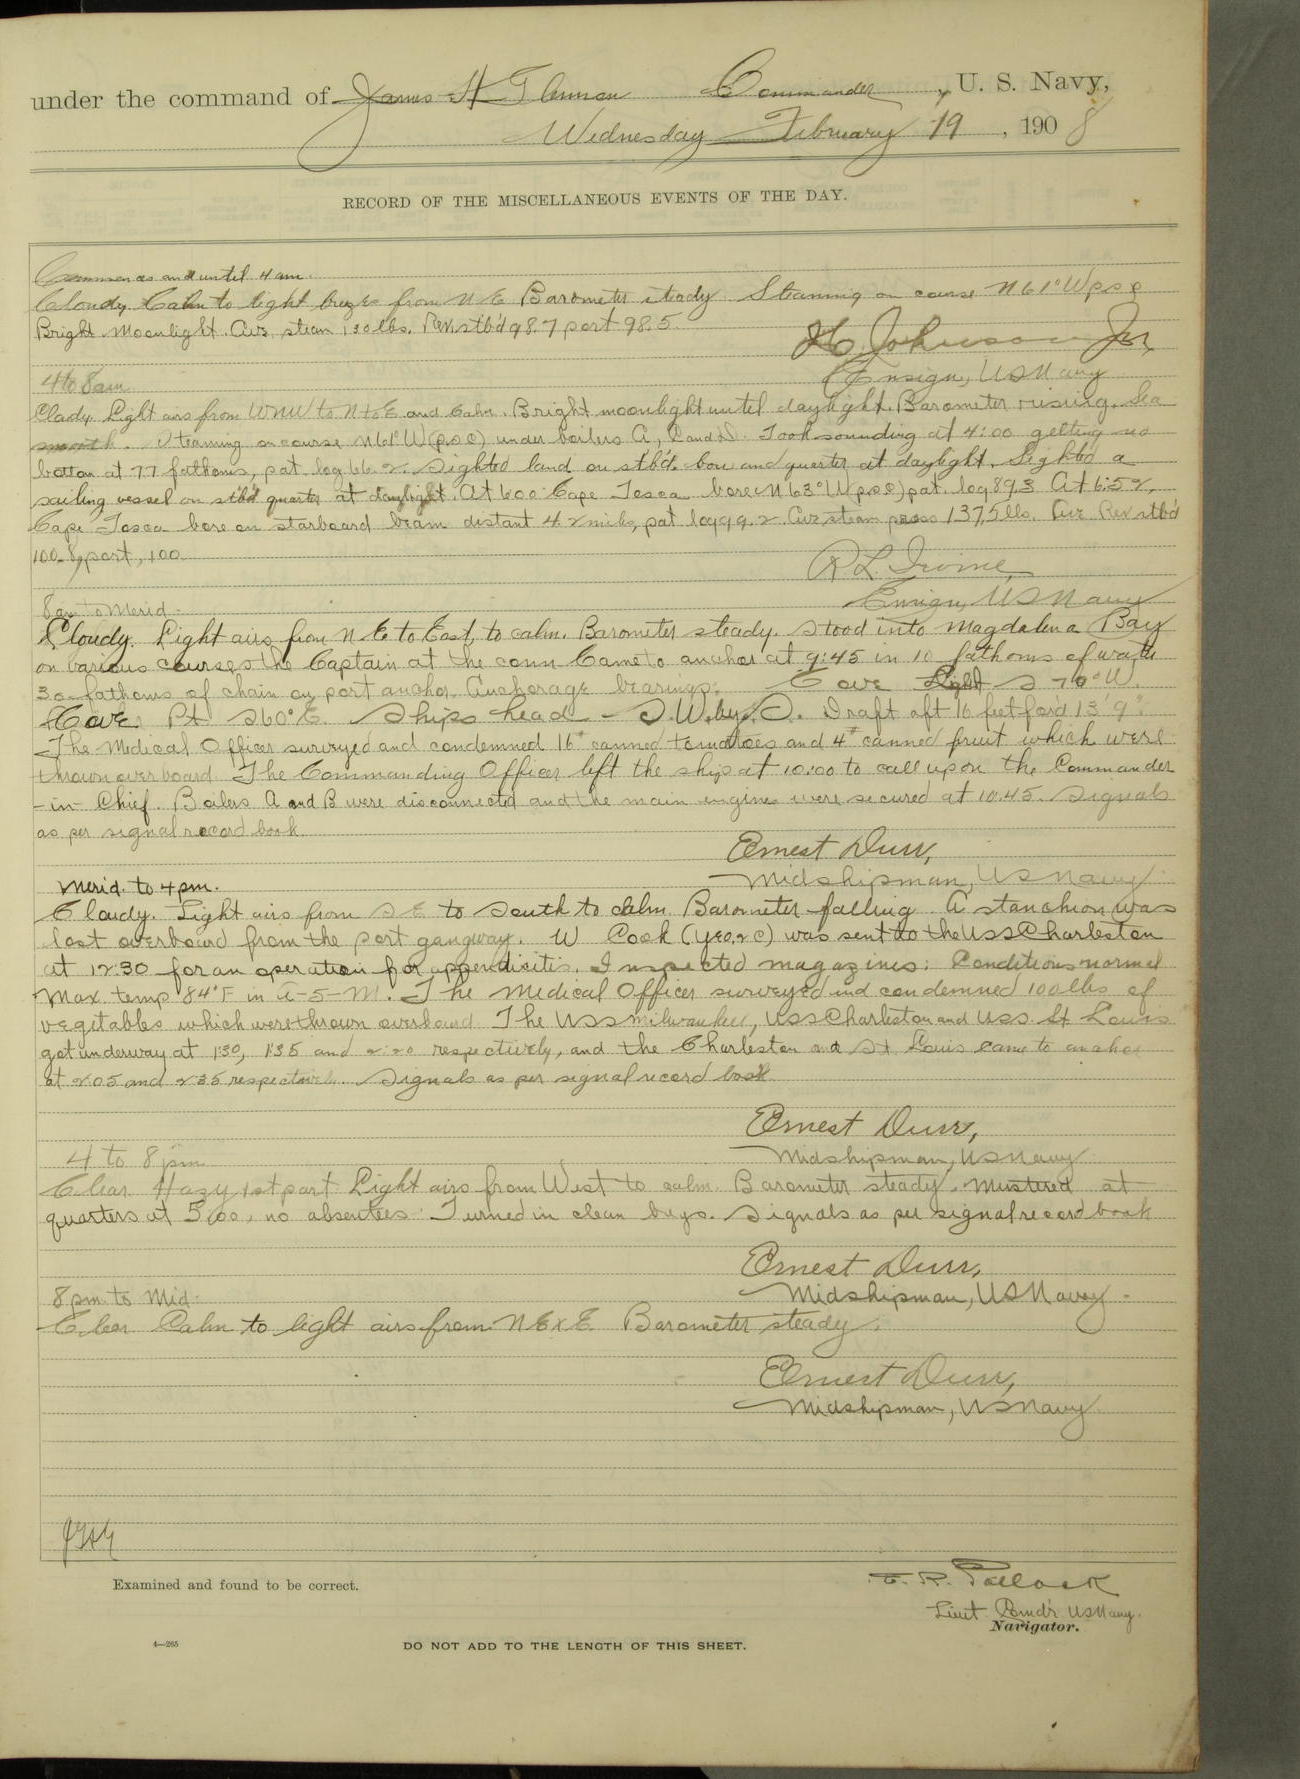 under the command of James H Glennon Commander, U. S. Navy,
Wednesday February 19, 1908
RECORD OF THE MISCELLANEOUS EVENTS OF THE DAY.
Commences and until 4 am.
Cloudy. Calm to light breeze from N E Barometer steady Steaming on course N61°W p.s.c
Bright Moonlight. Ave. steam 130 lbs. Rev. stb'd 98.7 port 98.5.
Johnson Jr,
Ensign, US Navy
4 to 8 am
Cloudy. Light airs from WNW to N to E and Calm. Bright moonlight until daylight. Barometer rising. Sea
smooth. Steaming on course N61°W (p.s.c) under boilers A, C and D. Took sounding at 4:00 getting no
bottom at 77 fathoms, pat. log 66.2. Sighted land on stb'd. bow and quarter at daylight. Sighted a
sailing vessel on stb'd quarter at daylight. At 6:00 Cape Tosca bore N 63°W (p.s.c) pat. log 89.3 At 6:52,
Cape Tosca bore on starboard beam distant 4.2 miles, pat log 99.2. Ave. steam press 137.5 lbs. Ave Rev stb'd
100.8, port, 100
R L Irvine,
Ensign, US Navy
8 am to Merid.
Cloudy. Light airs from N E to East, to calm. Barometer steady. Stood into Magdalena Bay
on various courses the Captain at the conn Came to anchor at 9:45 in 10 fathoms of water
30 fathoms of chain on port anchor. Anchorage bearings: Cove Light S 70°W.
Cove Pt S60°E. Ships head S.W. by S. Draft aft 16 feet for'd 13' 9".
The Medical Officer surveyed and condemned 16# canned tomatoes and 4# canned fruit which were
thrown overboard The Commanding Officer left the ship at 10:00 to call upon the Commander
-in- Chief. Boilers A and B were disconnected and the main engines were secured at 10:45. Signals
as per signal record book
Ernest Durr,
Midshipman, US Navy
Merid. to 4 pm.
Cloudy. Light airs from S E to South to calm Barometer falling A stanchion was
lost overboard from the port gangway. W Cook (Yeo, 2 C) was sent to the USS Charleston
at 12:30 for an operation for appendicitis. Inspected magazines: Conditions normal
Max. temp 84°F in A-5-M. The Medical Officer surveyed and condemned 100 lbs of
vegetables which were thrown overboard The USS Milwaukee, USS Charleston and USS. St Louis
got underway at 1:30, 1:35 and 2:20 respectively, and the Charleston and St. Louis came to anchor
at 2.05 and 2.35 respectively. Signals as per signal record book
Ernest Durr,
Midshipman, US Navy
4 to 8 pm
Clear Hazy 1st part Light airs from West to calm. Barometer steady. Mustered at
quarters at 5:00, no absentees. Turned in clean bags. Signals as per signal record book
Ernest Durr,
Midshipman, US Navy
8 pm to Mid
Clear Calm to light airs from NExE. Barometer steady.
Ernest Durr,
Midshipman, US Navy.
Examined and found to be correct.
E. R. Pollock
Lieut Comd'r US Navy.
Navigator.
4—265
DO NOT ADD TO THE LENGTH OF THIS SHEET.